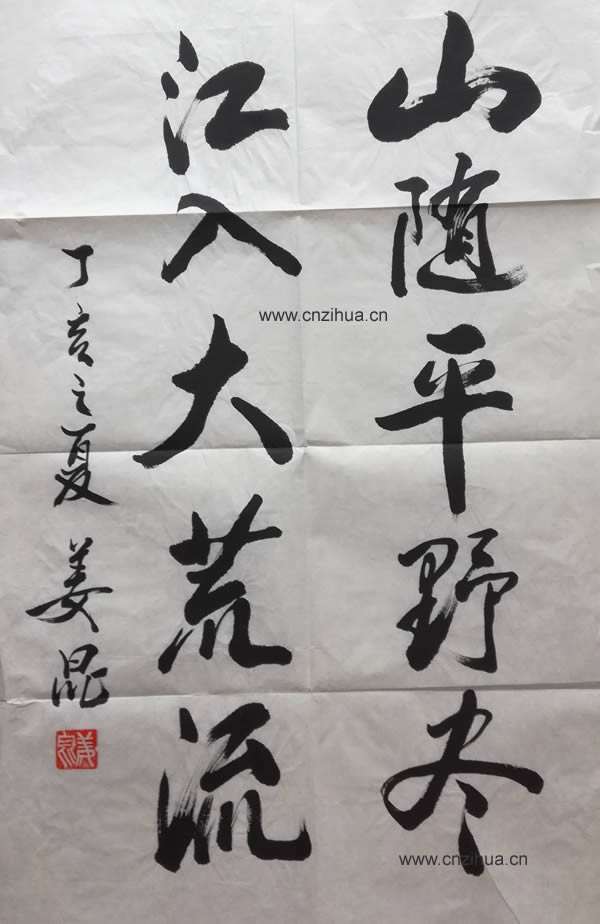 山随平野尽
江入大荒流
丁亥之夏 姜昆
www.cnzihua.cn
www.cnzihua.cn